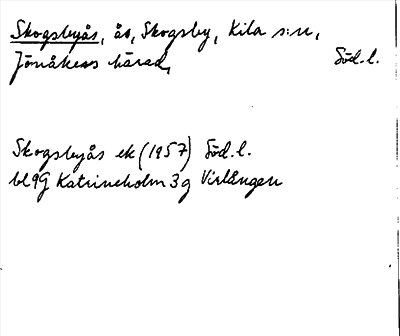 Skogsbyås, ås, Skogsby, Kila s:n,
Jönåkers härad, Söd. l.
Skogsbyås ek (1957) Söd. l.
bl 9G Katrineholm 3g Virlången